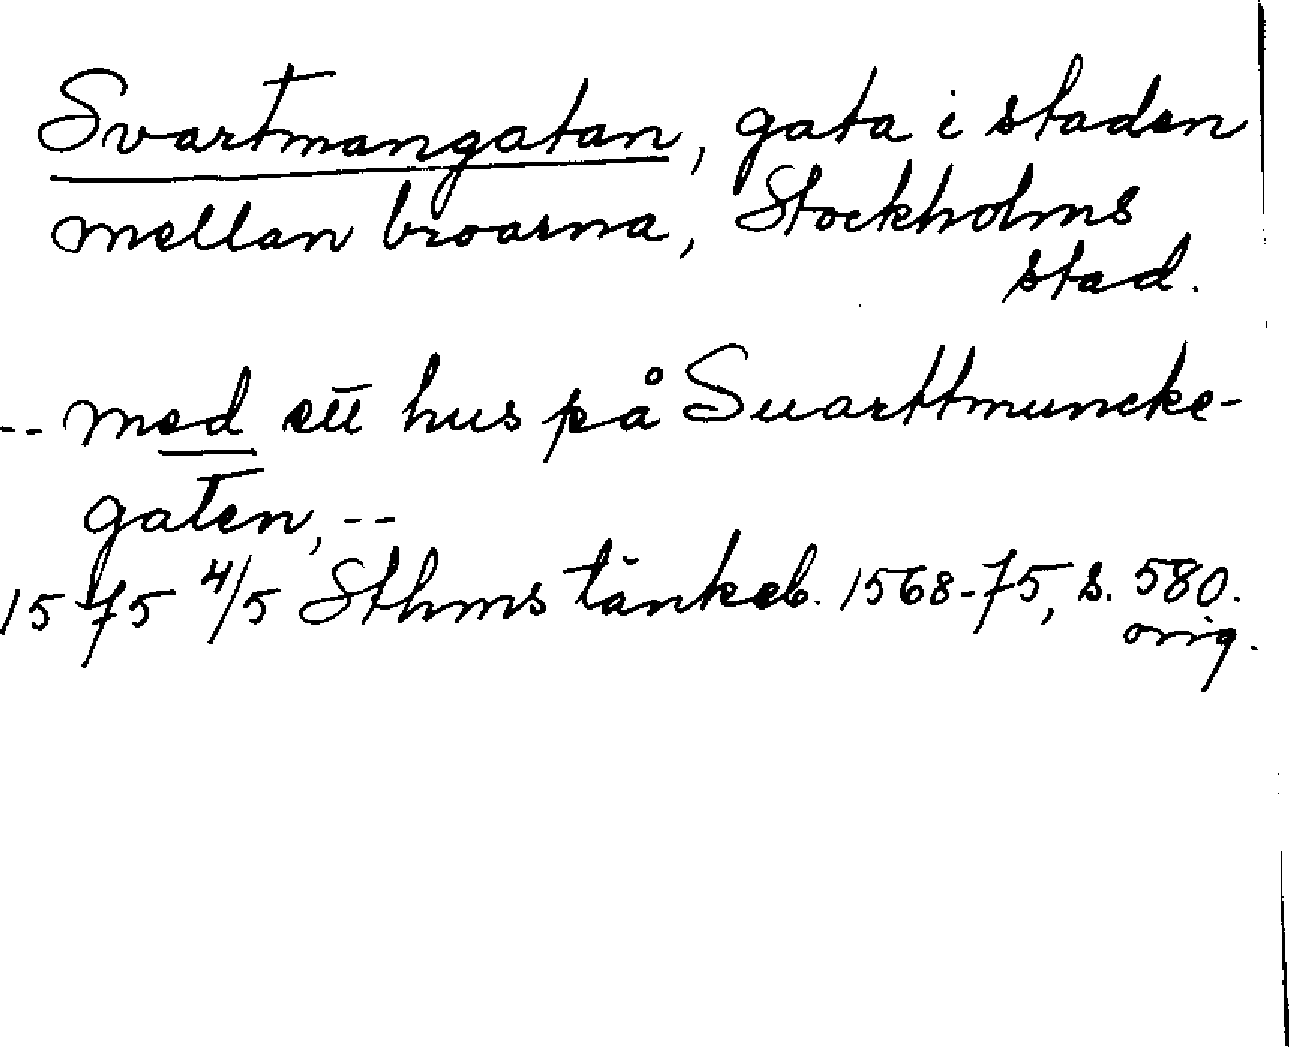 Svartmangatan, gata i staden
mellan broarna, Stockholms
stad.
-- med ett hus på Suarttmuncke-
gaten, --
1575 4/5 Sthms tänkeb. 1568-75, s. 580.
orig.